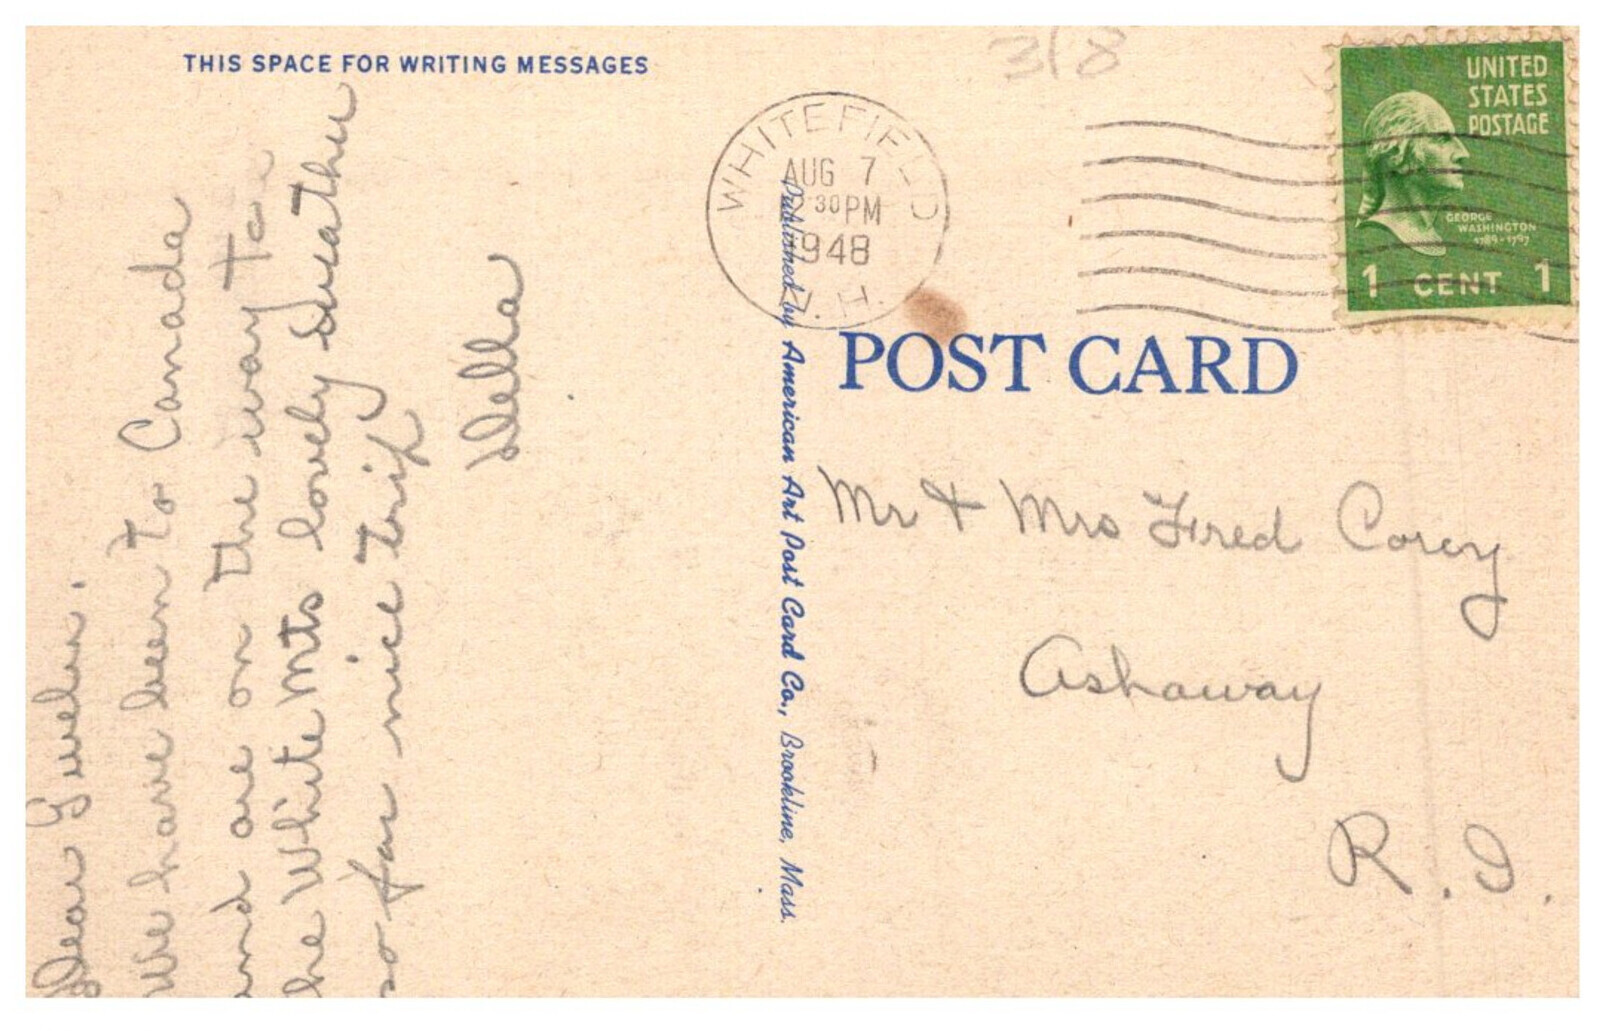 THIS SPACE FOR WRITING MESSAGES
Dear
We have been to Canada
and are on the way to
the White Mts lovely weather
so far nice trip
Della
318
WHITEFIELD
AUG 7
2 30 PM
1948
N.H.
UNITED
STATES
POSTAGE
GEORGE
WASHINGTON
1789-1797
1 CENT 1
POST CARD
Published by American Art Post Card Co., Brookline, Mass.
Mr & Mrs Fred Corey
Ashaway
R.I.